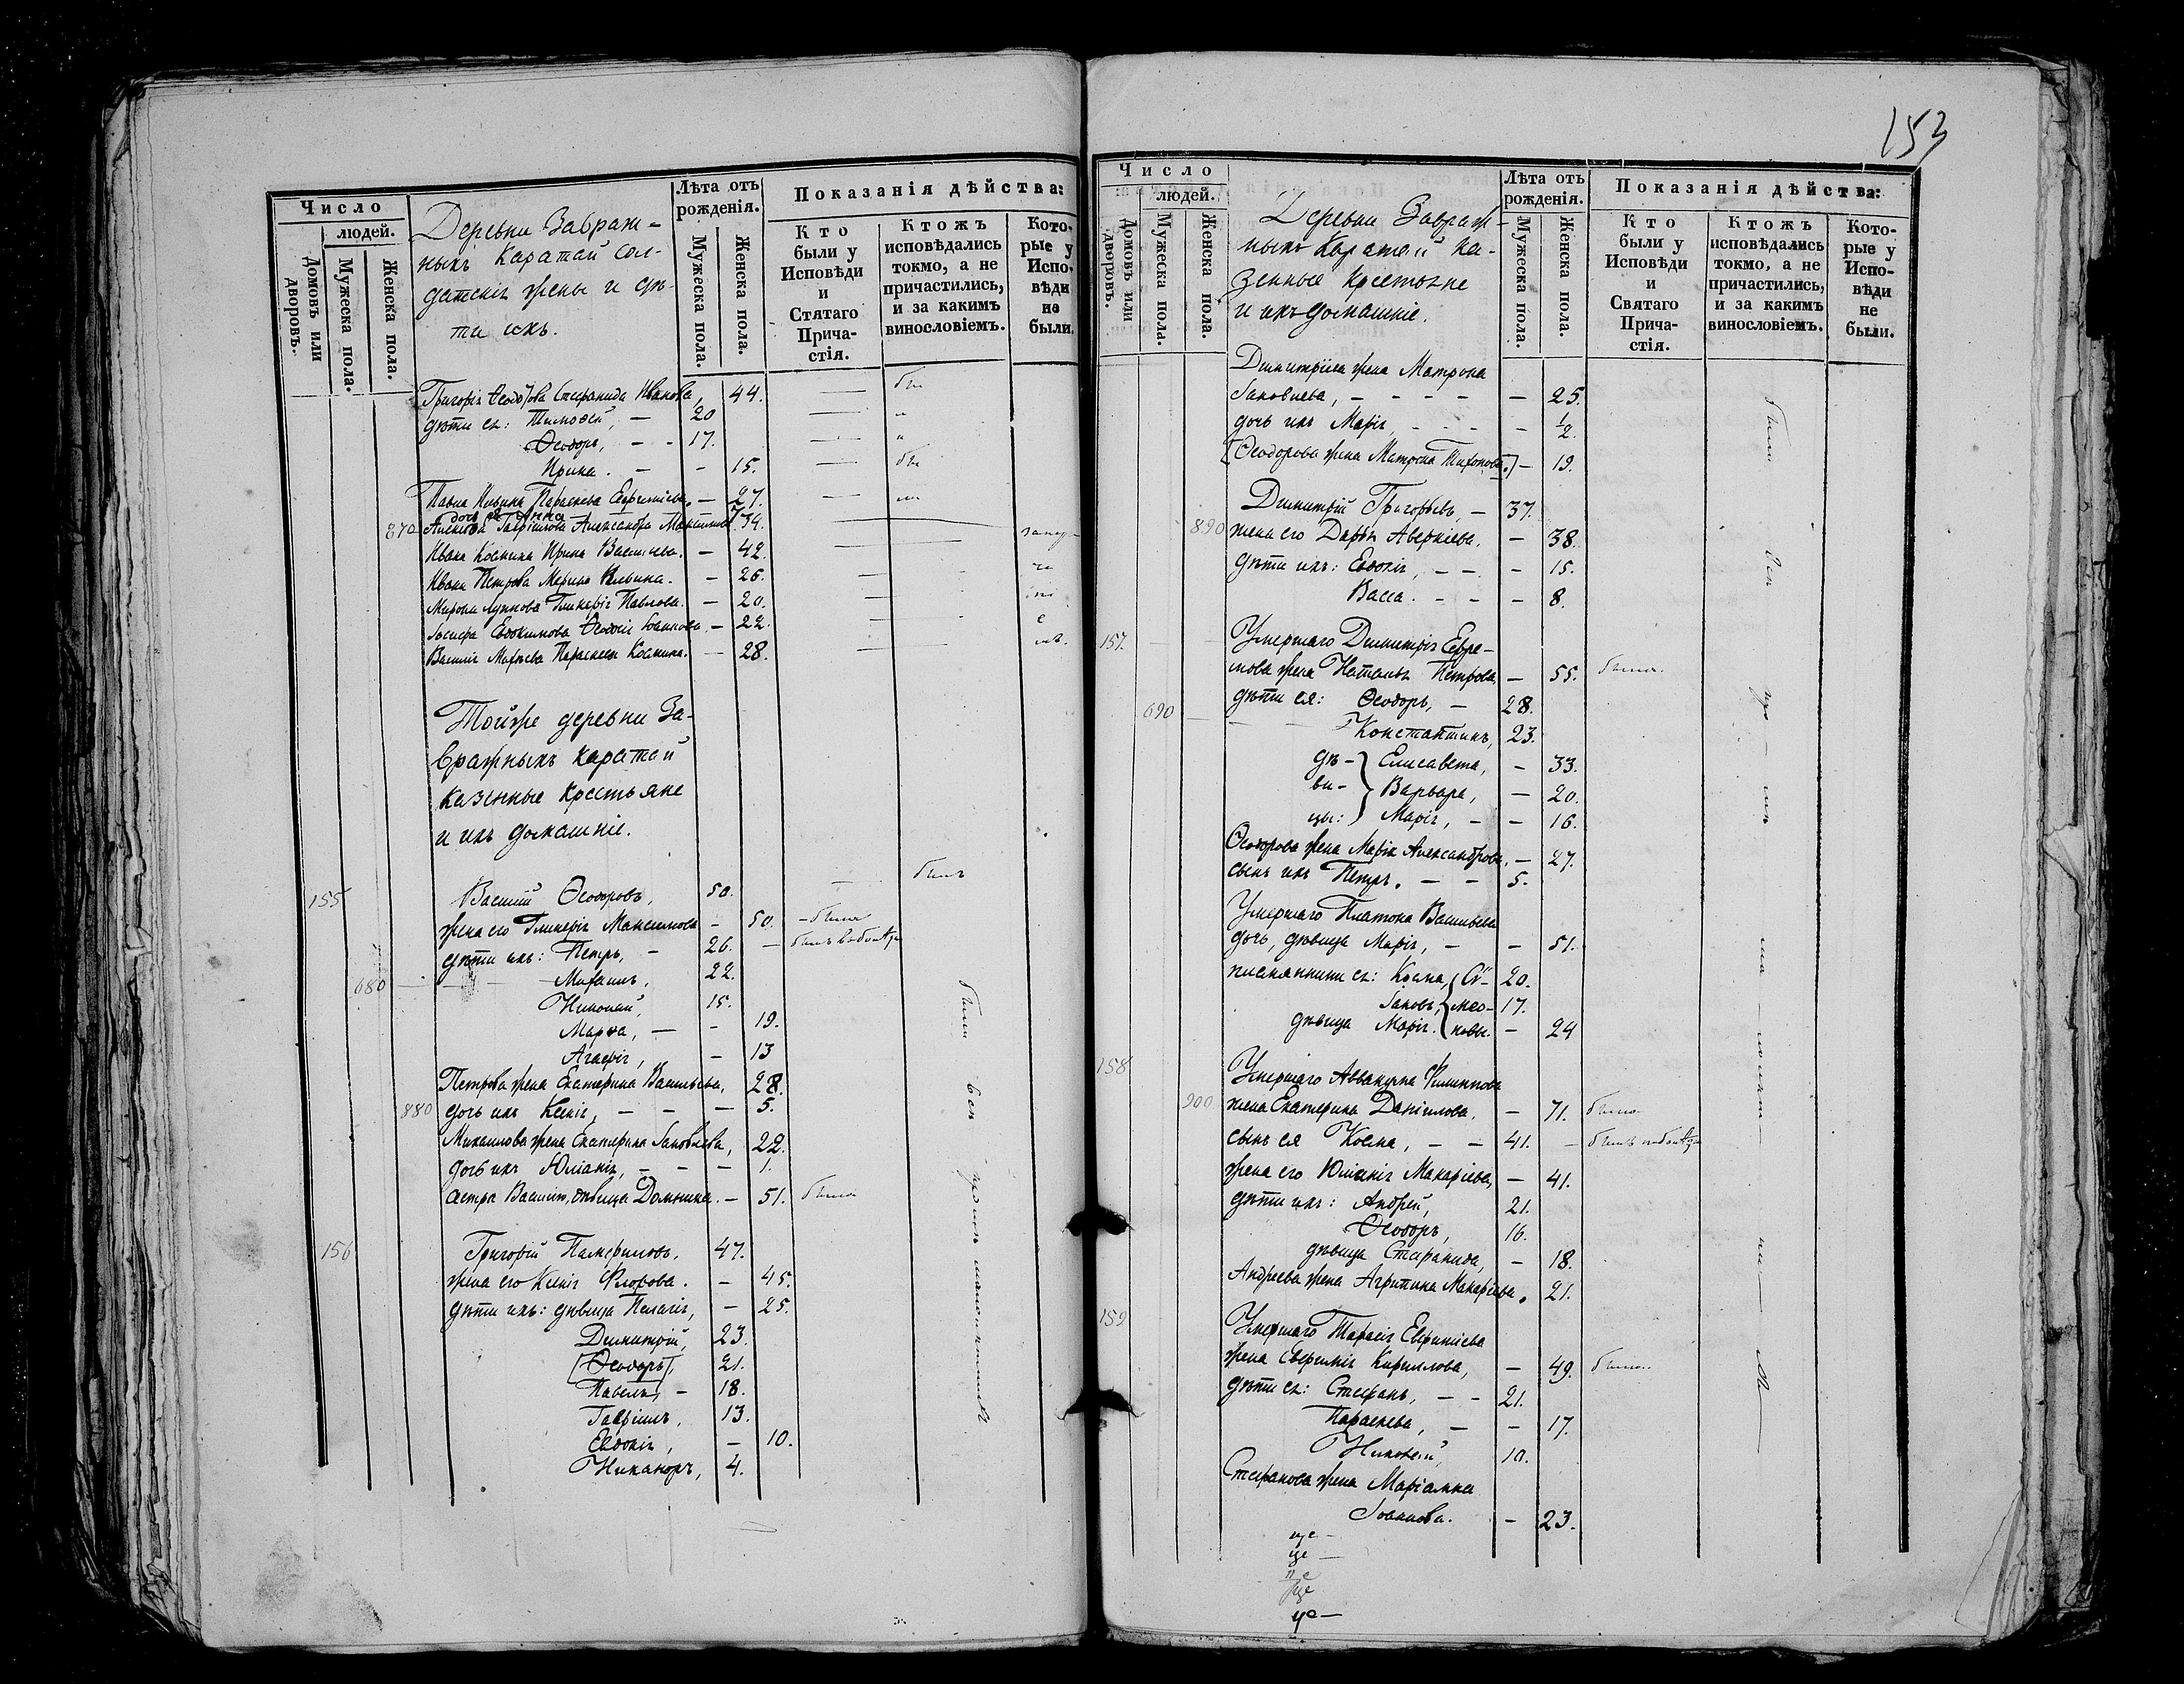 Число
людей.
Домовъ или дворовъ.
Мужеска пола.
Женска пола.
Деревни Завраж-
ныхъ Каратай сол-
датскія жены и дѣ-
ти ихъ.
Лѣта отъ рожденія.
Мужеска пола.
Женска пола.
Показанія дѣйства:
Кто были у Исповѣди и Стятаго Прича-стія.
Ктожъ исповѣдались токмо, а не причастились, и за какимъ винословіемъ.
Кото-рые у Испо-вѣди не были.
Григорія Ѳеодорова Стефанида Иванова, 44.
дѣти ея: Тимоѳей, — 20
Ѳеодоръ, - - 17.
Ирина. — - 15.
Павла Ильина Параскева Евфиміева. — 27.
дочь ея Анна
870 Алексѣя Гавріилова Александра Максимова. 34.
Ивана Космина Ирина Васильева. — 42.
Ивана Петрова Марья Ильина. — 26.
Мирона Лупнова Гликерія Павлова. — 20.
Іосифа Евдокимова Ѳеодосія Іоаннова. — 22.
Василія Матѳеева Параскева Космина. — 28.
Тойже деревни За-
вражныхъ Каратай
казенные крестьяне
и ихъ домашніе.
155 Василій Ѳеодоровъ, 50.
былъ
жена его Гликерія Максимова - 50. - была
дѣти ихъ: Петръ, - 26. —
680 Михаилъ, 22.
Николай, 15.
Марѳа, — - 19.
Агафія, — 13
Петрова жена Екатерина Васильева, 28.
880 дочь ихъ Ксенія, — — — 5.
Михаилова жена Екатерина Іаковлева, 22.
дочь ихъ Юліанія, — — — 1.
сестра Василію, дѣвица Домника. — 51. была
156 Григорій Памфиловъ, 47.
жена его Ксенія Флорова. — 45.
дѣти ихъ: дѣвица Пелагія, — 25.
Димитрій, 23.
[Ѳеодоръ], 21.
Павелъ, - 18.
Гавріилъ, 13.
Евдокія, — 10.
Никаноръ, 4.
были
всѣ
153
Число
людей.
Домовъ или дворовъ.
Мужеска пола.
Женска пола.
Деревни Завраж-
ныхъ Каратай ка-
зенные крестьяне
и ихъ домашніе.
Лѣта отъ рожденія.
Мужеска пола.
Женска пола.
Показанія дѣйства:
Кто были у Исповѣди и Святаго Прича-стія.
Ктожъ исповѣдались токмо, а не причастились, и за какимъ винословіемъ.
Кото-рые у Испо-вѣди не были.
Димитріева жена Матрона
Іаковлева, - - - - — 25.
дочь ихъ Марія, - - - - 1/2.
[Ѳеодорова жена Матрона Тихонова.] — 19.
Димитрій Григорьевъ, — 37.
890 жена его Дарья Аверкіева. — 38.
дѣти ихъ: Евдокія, - - - 15.
Васса. - - - 8.
157. Умершаго Димитрія Ефре-
мова жена Наталья Петрова, — 55. была.
690 дѣти ея: Ѳеодоръ, — 28.
Константинъ, 23.
дѣ- Елисавета, - 33.
ви- Варвара, — 20.
цы: Марія, - - 16.
Ѳеодорова жена Марія Александрова, — 27.
сынъ ихъ Петръ. — — 5.
Умершаго Платона Васильева
дочь, дѣвица Марія, — - 51.
племянники ея: Косма, Си- 20.
Іаковъ, мео- 17.
дѣвица Марія. новы. — 24
158 Умершаго Аввакума Филиппова
900 жена Екатерина Даніилова. — 71. была
сынъ ея Косма, — — 41.
жена его Юліанія Макаріева, — 41.
дѣти ихъ: Андрей, 21.
Ѳеодоръ, 16.
дѣвица Стефанида, — 18.
Андреева жена Агрипина Макаріева. 21.
159 Умершаго Тарасія Евфиміева
жена Евфимія Кириллова, — 49. была.
дѣти ея: Стефанъ, — - 21.
Параскева, — - 17.
Николай, 10.
Стефанова жена Маріамна
Іоаннова. - 23.
были
всѣ